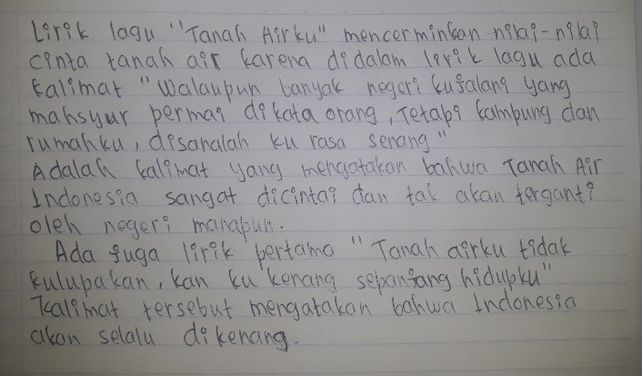 Lirik lagu "Tanah Airku" mencerminkan nilai-nilai
cinta tanah air karena didalam lirik lagu ada
kalimat "Walaupun banyak negeri kujalani yang
mahsyur permai dikata orang, Tetapi kampung dan
rumahku, disanalah ku rasa senang"
Adalah kalimat yang mengatakan bahwa Tanah Air
Indonesia sangat dicintai dan tak akan terganti
oleh negeri manapun.
Ada juga lirik pertama "Tanah airku tidak
kulupakan, kan ku kenang sepanjang hidupku"
Kalimat tersebut mengatakan bahwa Indonesia
akan selalu dikenang.